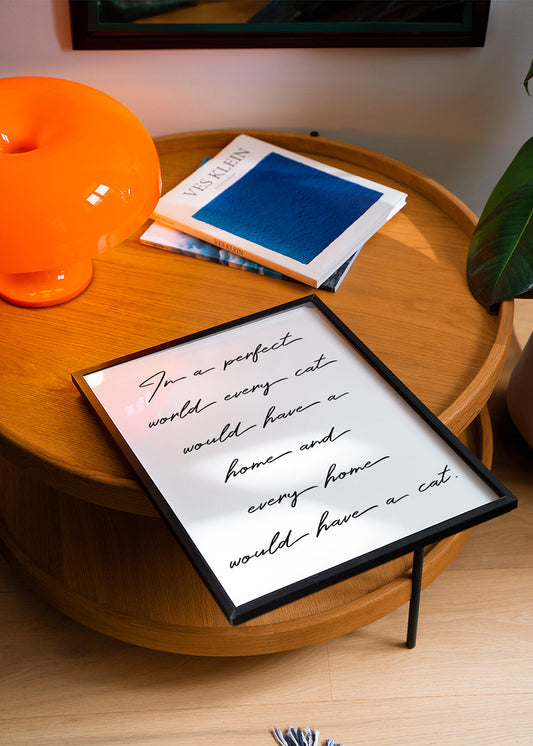 VES KLEIN
KLEIN
In a perfect
world every cat
would have a
home and
every home
would have a cat.